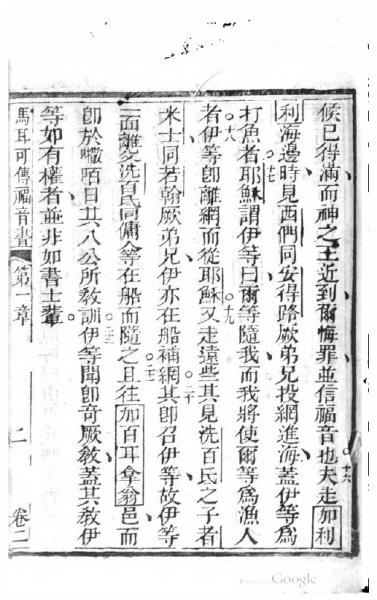 候已得滿而神之王近到爾悔罪並信福音也夫走加利
十六
利海邊時見西們同安得路厥弟兄投網進海蓋伊等爲
打魚者耶穌謂伊等曰爾等隨我而我將使爾等爲漁人
十七
者伊等即離網而從耶穌又走遠些其見洗百氏之子者
十八
十九
米士同若翰厥弟兄伊亦在船補網其即召伊等故伊等
二十
一面離父洗百氏同傭人等在船而隨之且往加百耳拿翁邑而
二一
即於嘨咟日其入公所教訓伊等聞即奇厥教蓋其教伊
等如有權者並非如書士輩
馬耳可傳福音書
第一章
二
卷二
Google